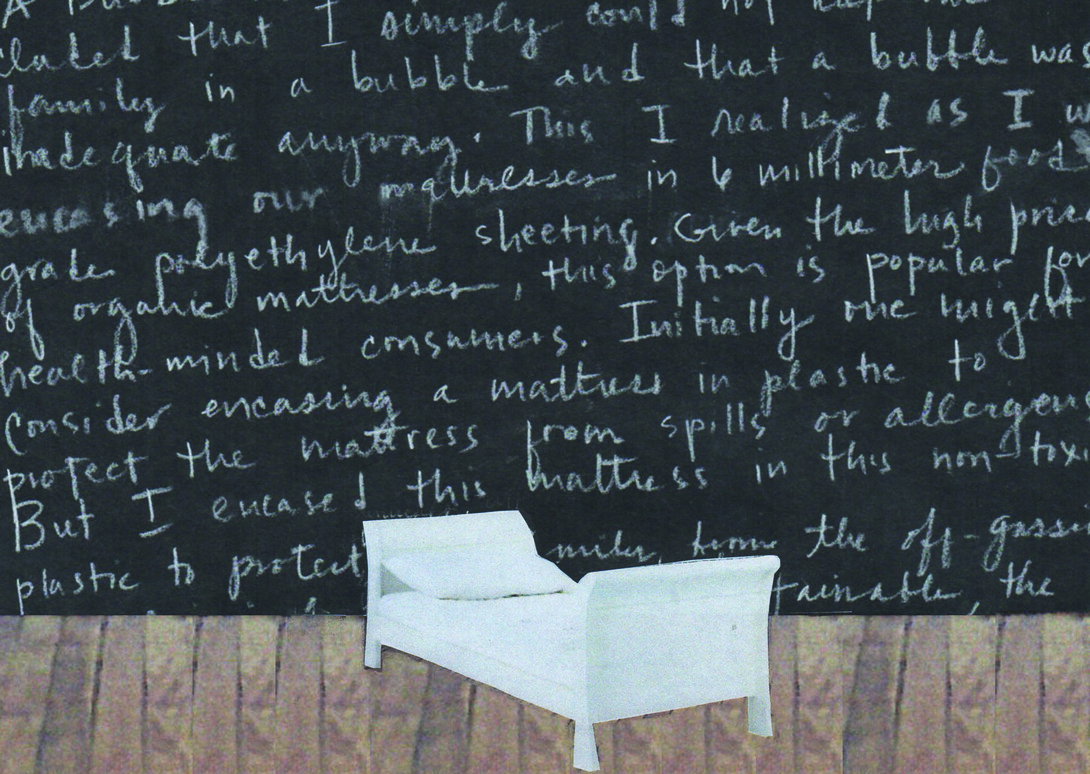 A
clated that I simply could not
family in a bubble and that a bubble was
inadequate anyway. This I realized as I w
encasing our mattresses in 6 millimeter food
grade polyethylene sheeting. Given the high price
of organic mattresses, this option is popular for
health-minded consumers. Initially one might
consider encasing a mattress in plastic to
protect the mattress from spills or allergens
But I encased this mattress in this non-toxi
plastic to protect mily from the off-gassi
tainable, the